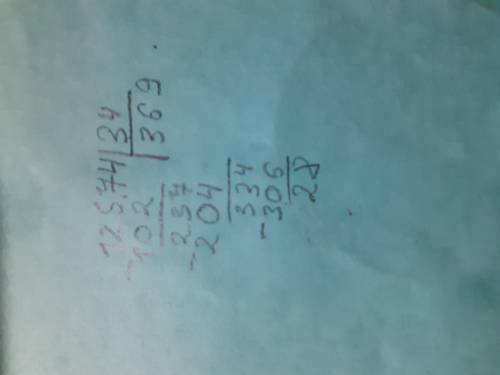 12574|34
-102 |369
237
-204
334
-306
28